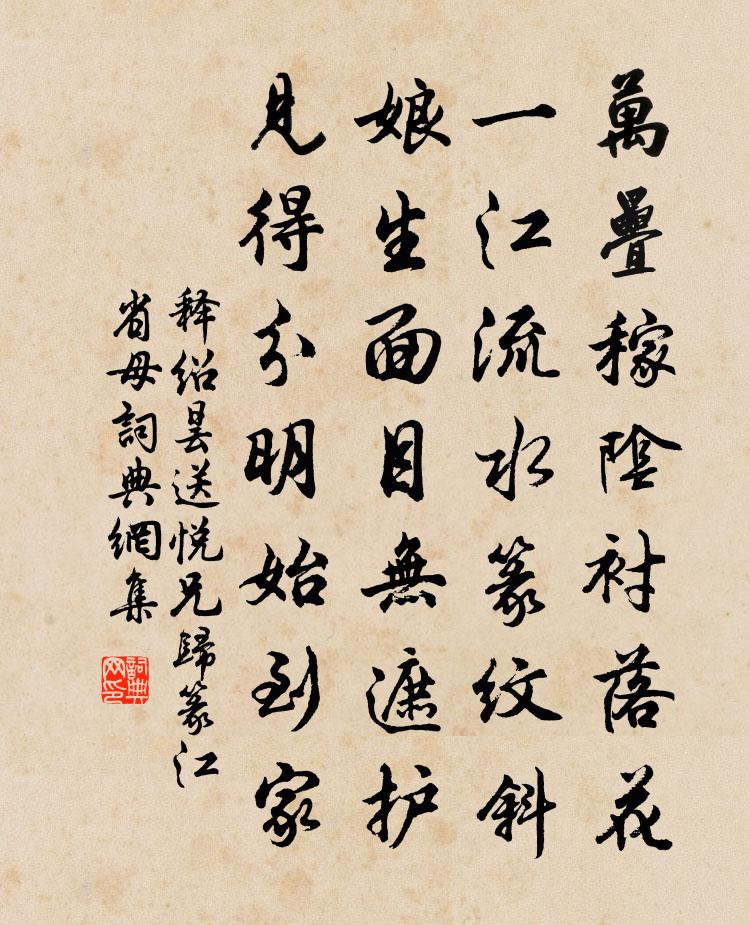 萬疊稼陰衬落花
一江流水篆纹斜
娘生面目無遮护
見得分明始到家
释绍昙送悦兄歸篆江
省母詞典網集
詞典网印